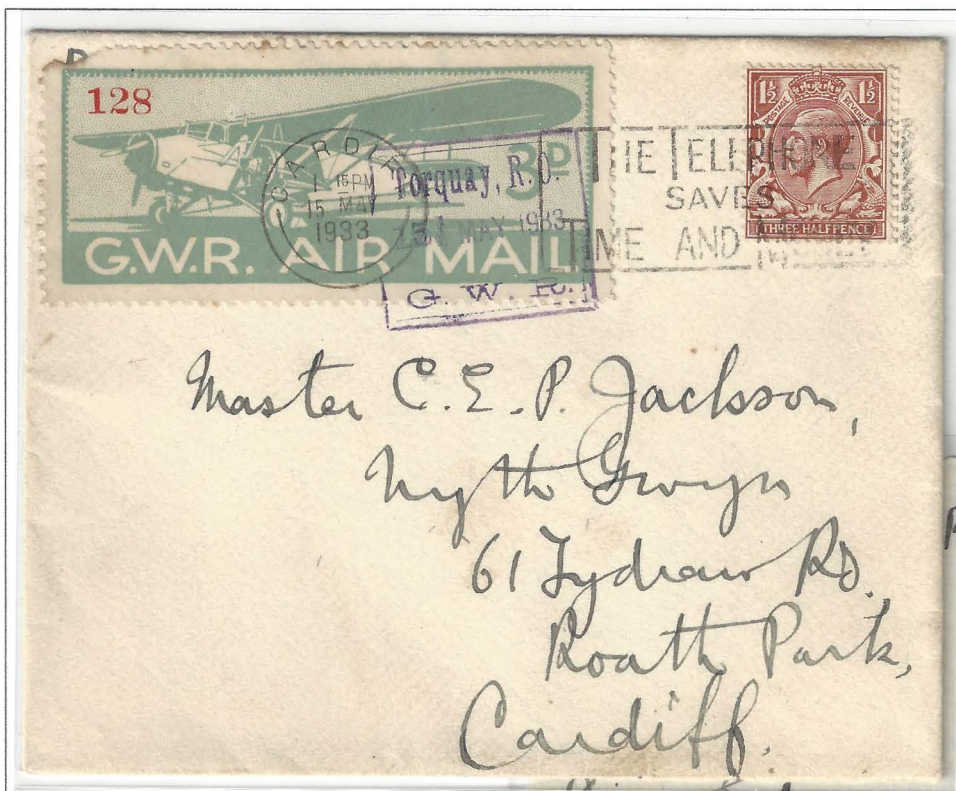 128
3D
G.W.R. AIR MAIL.
CARDIFF
1 15 PM
15 MAY
1933
Torquay, R.O.
15 MAY 1933
G. W. R.
THE TELEPHONE
SAVES
TIME AND MONEY
1½ 1½
POSTAGE REVENUE
THREE HALFPENCE
Master C. E. P. Jackson,
Nyth Gwyn
61 Tydraw Rd.
Roath Park,
Cardiff.